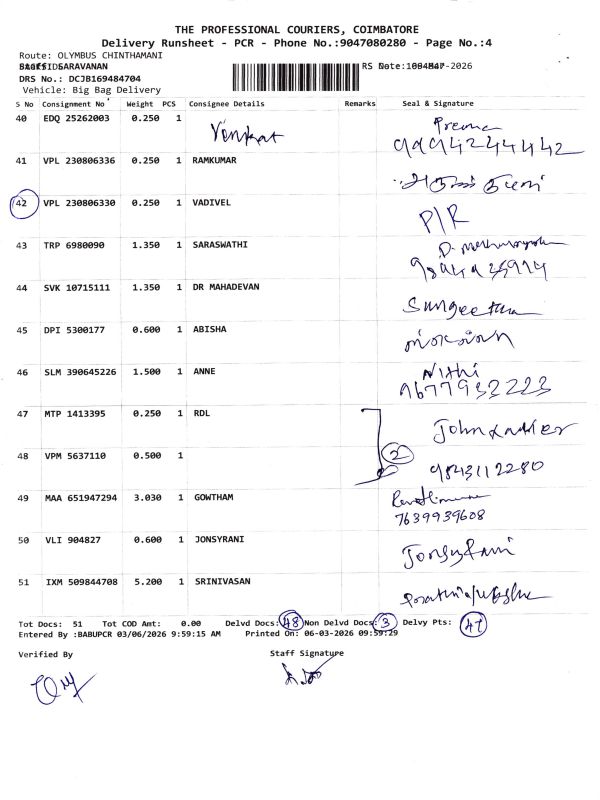 THE PROFESSIONAL COURIERS, COIMBATORE
Delivery Runsheet - PCR - Phone No.:9047080280 - Page No.:4
Route: OLYMBUS CHINTHAMANI
SARAVANAN
DRS No.: DCJB169484704
Vehicle: Big Bag Delivery
S No Consignment No Weight PCS Consignee Details Remarks Seal & Signature
40 EDQ 25262003 0.250 1 Venkat Prema
9994244442
41 VPL 230806336 0.250 1 RAMKUMAR
42 VPL 230806330 0.250 1 VADIVEL P/R
43 TRP 6980090 1.350 1 SARASWATHI
44 SVK 10715111 1.350 1 DR MAHADEVAN Sungeetha
45 DPI 5300177 0.600 1 ABISHA
46 SLM 390645226 1.500 1 ANNE Nithi
9677932223
47 MTP 1413395 0.250 1 RDL John
48 VPM 5637110 0.500 1 2 9843112280
49 MAA 651947294 3.030 1 GOWTHAM
7639939608
50 VLI 904827 0.600 1 JONSYRANI Jonsyrani
51 IXM 509844708 5.200 1 SRINIVASAN
Tot Docs: 51 Tot COD Amt: 0.00 Delvd Docs: 48 Non Delvd Docs: 3 Delvy Pts: 47
Entered By :BABUPCR 03/06/2026 9:59:15 AM Printed On: 06-03-2026 09:59:29
Verified By Staff Signature